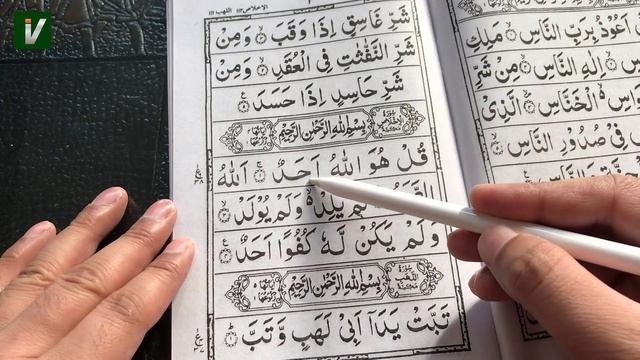 الاخلاص ١١٢ اللهب ١١١
شَرِّ غَاسِقٍ اِذَا وَقَبَ ۙ وَمِنْ
شَرِّ النَّفّٰثٰتِ فِى الْعُقَدِ ۙ وَمِنْ
شَرِّ حَاسِدٍ اِذَا حَسَدَ
بِسْمِ اللهِ الرَّحْمٰنِ الرَّحِيْمِ
قُلْ هُوَ اللهُ اَحَدٌ ۚ اَللهُ
يَلِدْ ۙ وَلَمْ يُوْلَدْ ۙ
وَلَمْ يَكُنْ لَّهٗ كُفُوًا اَحَدٌ
بِسْمِ اللهِ الرَّحْمٰنِ الرَّحِيْمِ
تَبَّتْ يَدَآ اَبِىْ لَهَبٍ وَّتَبَّ
اَعُوْذُ بِرَبِّ النَّاسِ ۙ مَلِكِ
النَّاسِ ۙ اِلٰهِ النَّاسِ ۙ مِنْ شَرِّ
الْخَنَّاسِ ۙ الَّذِىْ
فِىْ صُدُوْرِ النَّاسِ